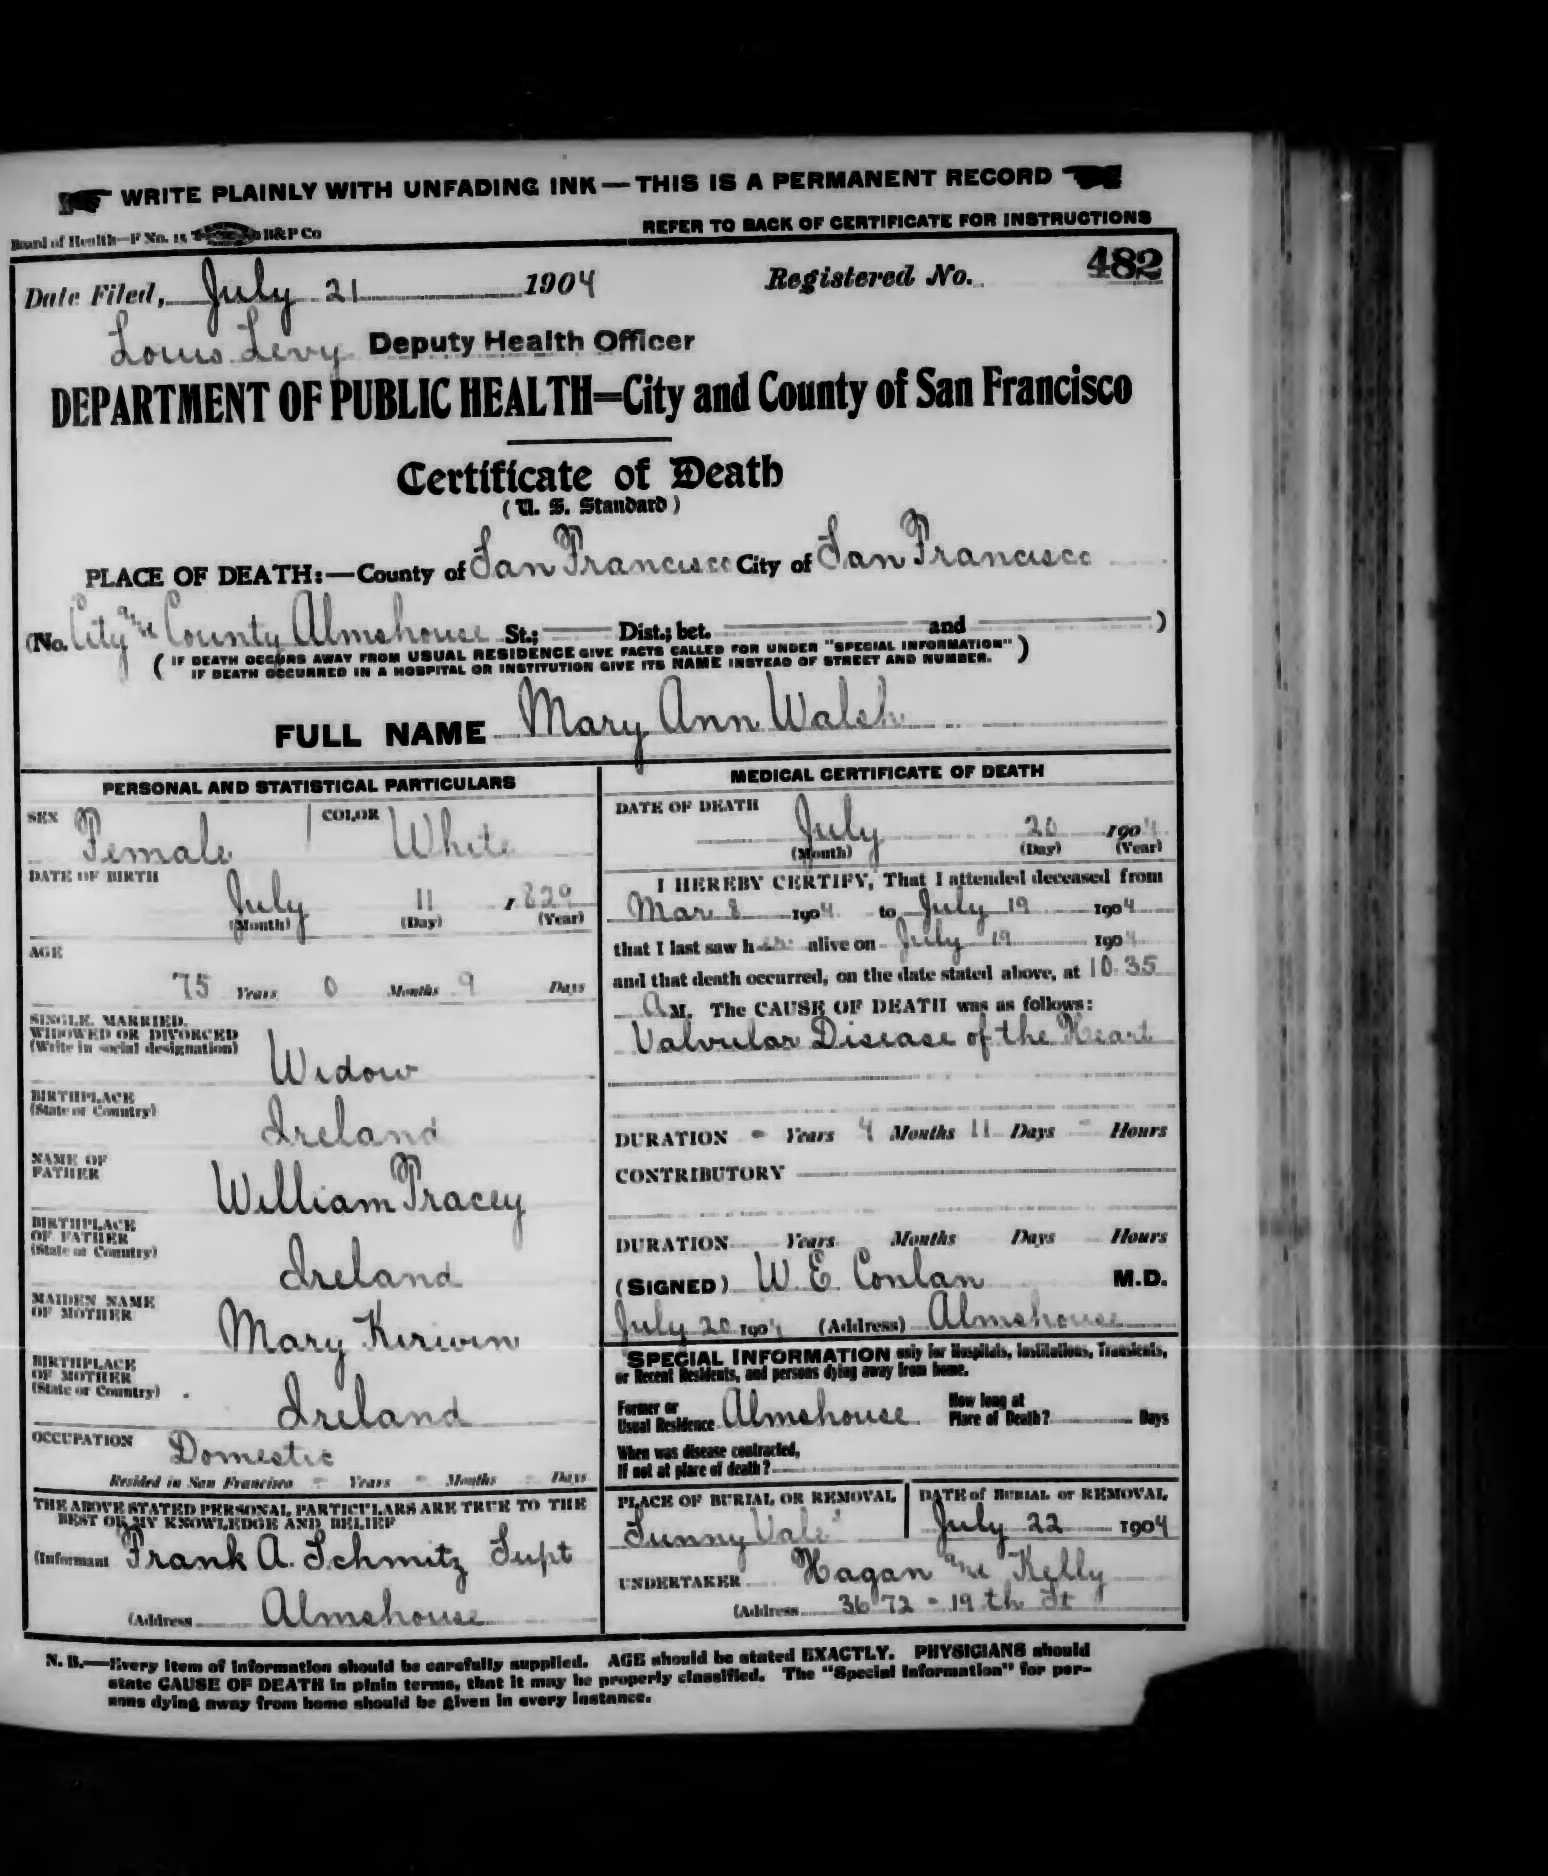 WRITE PLAINLY WITH UNFADING INK—THIS IS A PERMANENT RECORD
Board of Health—F No. 15 B&P Co REFER TO BACK OF CERTIFICATE FOR INSTRUCTIONS
Date Filed, July 21 1904 Registered No. 482
Louis Levy Deputy Health Officer
DEPARTMENT OF PUBLIC HEALTH=City and County of San Francisco
Certificate of Death
(U. S. Standard)
PLACE OF DEATH:—County of San Francisco City of San Francisco
(No. City and County Almshouse St.; Dist.; bet. and )
( IF DEATH OCCURS AWAY FROM USUAL RESIDENCE GIVE FACTS CALLED FOR UNDER "SPECIAL INFORMATION" )
IF DEATH OCCURRED IN A HOSPITAL OR INSTITUTION GIVE ITS NAME INSTEAD OF STREET AND NUMBER.
FULL NAME Mary Ann Walsh
PERSONAL AND STATISTICAL PARTICULARS
SEX Female COLOR White
DATE OF BIRTH
July 11 1829
(Month) (Day) (Year)
AGE
75 Years 0 Months 9 Days
SINGLE, MARRIED,
WIDOWED OR DIVORCED
(Write in social designation)
Widow
BIRTHPLACE
(State or Country)
Ireland
NAME OF
FATHER
William Tracey
BIRTHPLACE
OF FATHER
(State or Country)
Ireland
MAIDEN NAME
OF MOTHER
Mary Kirwin
BIRTHPLACE
OF MOTHER
(State or Country)
Ireland
OCCUPATION Domestic
Resided in San Francisco - Years - Months - Days
THE ABOVE STATED PERSONAL PARTICULARS ARE TRUE TO THE
BEST OF MY KNOWLEDGE AND BELIEF
(Informant Frank A. Schmitz Supt
(Address Almshouse
MEDICAL CERTIFICATE OF DEATH
DATE OF DEATH
July 20 1904
(Month) (Day) (Year)
I HEREBY CERTIFY, That I attended deceased from
Mar. 8 1904 to July 19 1904
that I last saw her alive on July 19 1904
and that death occurred, on the date stated above, at 10.35
A M. The CAUSE OF DEATH was as follows:
Valvular Disease of the Heart
DURATION - Years 4 Months 11 Days - Hours
CONTRIBUTORY
DURATION Years Months Days Hours
(SIGNED) W. E. Conlan M.D.
July 20 1904 (Address) Almshouse
SPECIAL INFORMATION only for Hospitals, Institutions, Transients,
or Recent Residents, and persons dying away from home.
Former or
Usual Residence Almshouse
How long at
Place of Death? Days
When was disease contracted,
If not at place of death?
PLACE OF BURIAL OR REMOVAL
Sunny Vale
DATE of BURIAL or REMOVAL
July 22 1904
UNDERTAKER Hagan and Kelly
(Address 3672 - 19th St
N. B.—Every item of information should be carefully supplied. AGE should be stated EXACTLY. PHYSICIANS should
state CAUSE OF DEATH in plain terms, that it may be properly classified. The "Special Information" for per-
sons dying away from home should be given in every instance.